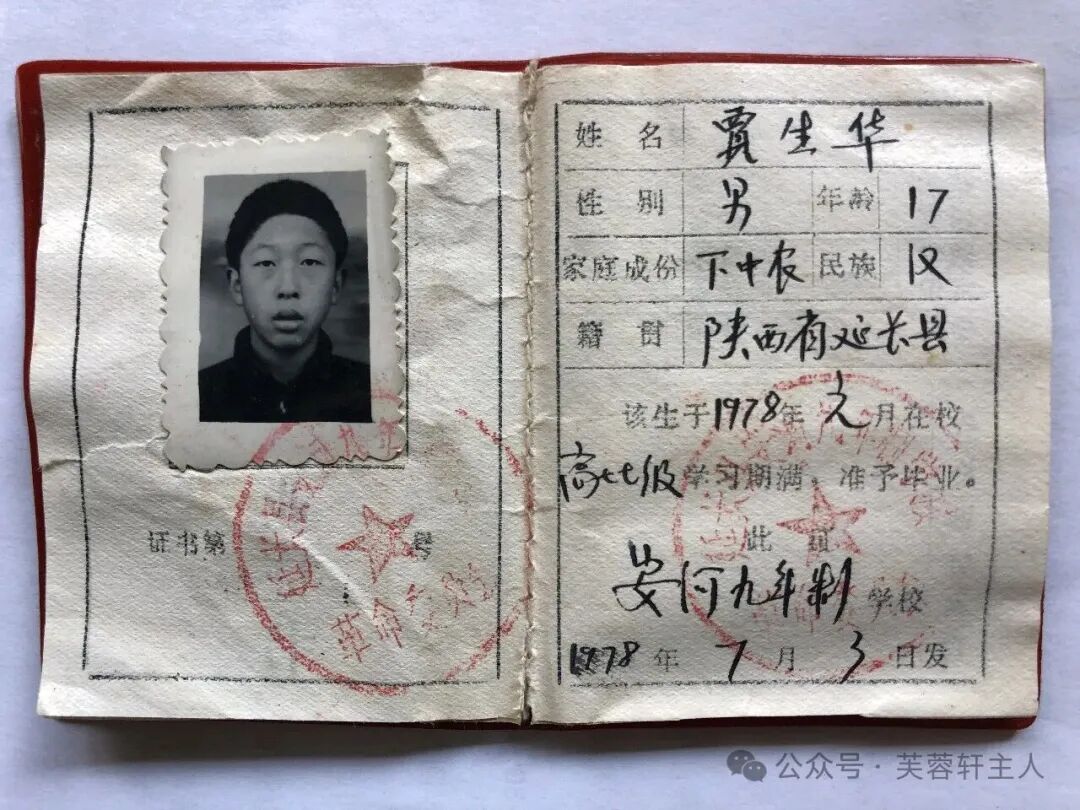 证书第 号
革命委员会
姓名 贾生华
性别 男 年龄 17
家庭成份 下中农 民族 汉
籍贯 陕西省延长县
该生于1978年元月在校
高七七级学习期满,准予毕业。
此证
安河九年制学校
1978年7月3日发
公众号·芙蓉轩主人